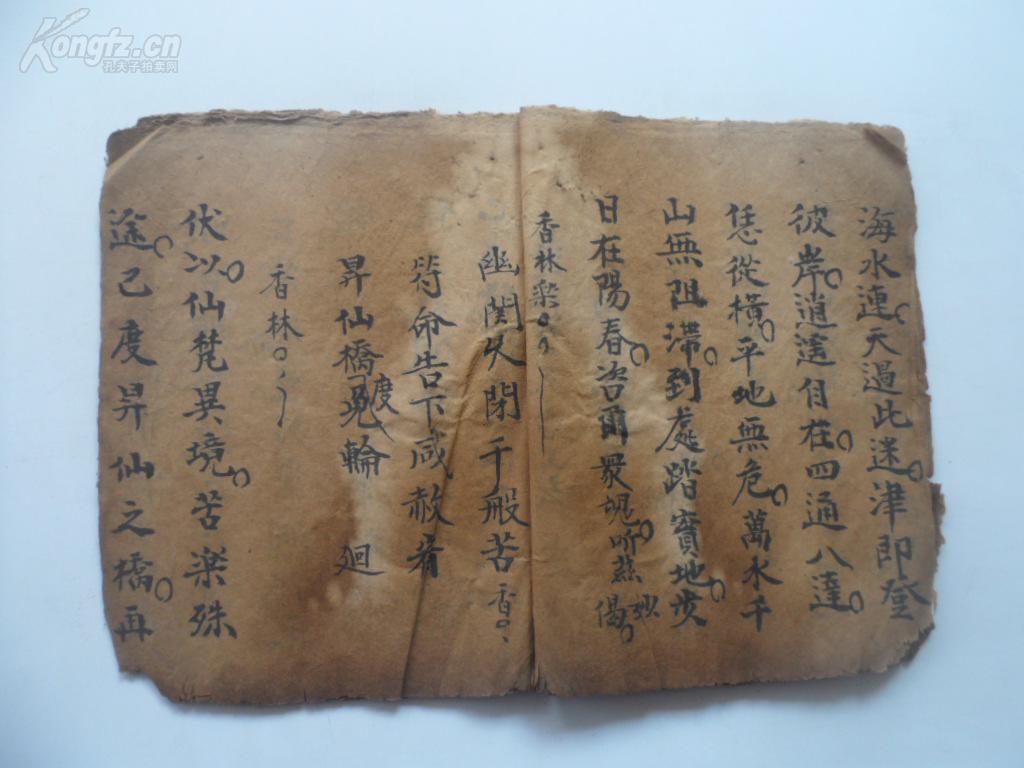 海水連。天過此迷。津即登
彼岸。逍遥自在。四通八達。
恁從橫。平地無危。萬水千
山無阻滯。到處踏寳地。步
日在陽春。咨爾衆魂。听兹妙
偈。
香林楽
幽関久閉千般苦香
符命告下咸赦看
昇仙橋度免輪 廻
香林
伏以。仙凢異境。苦楽殊
途。已度昇仙之橋。再
Kongfz.cn
孔夫子拍卖网